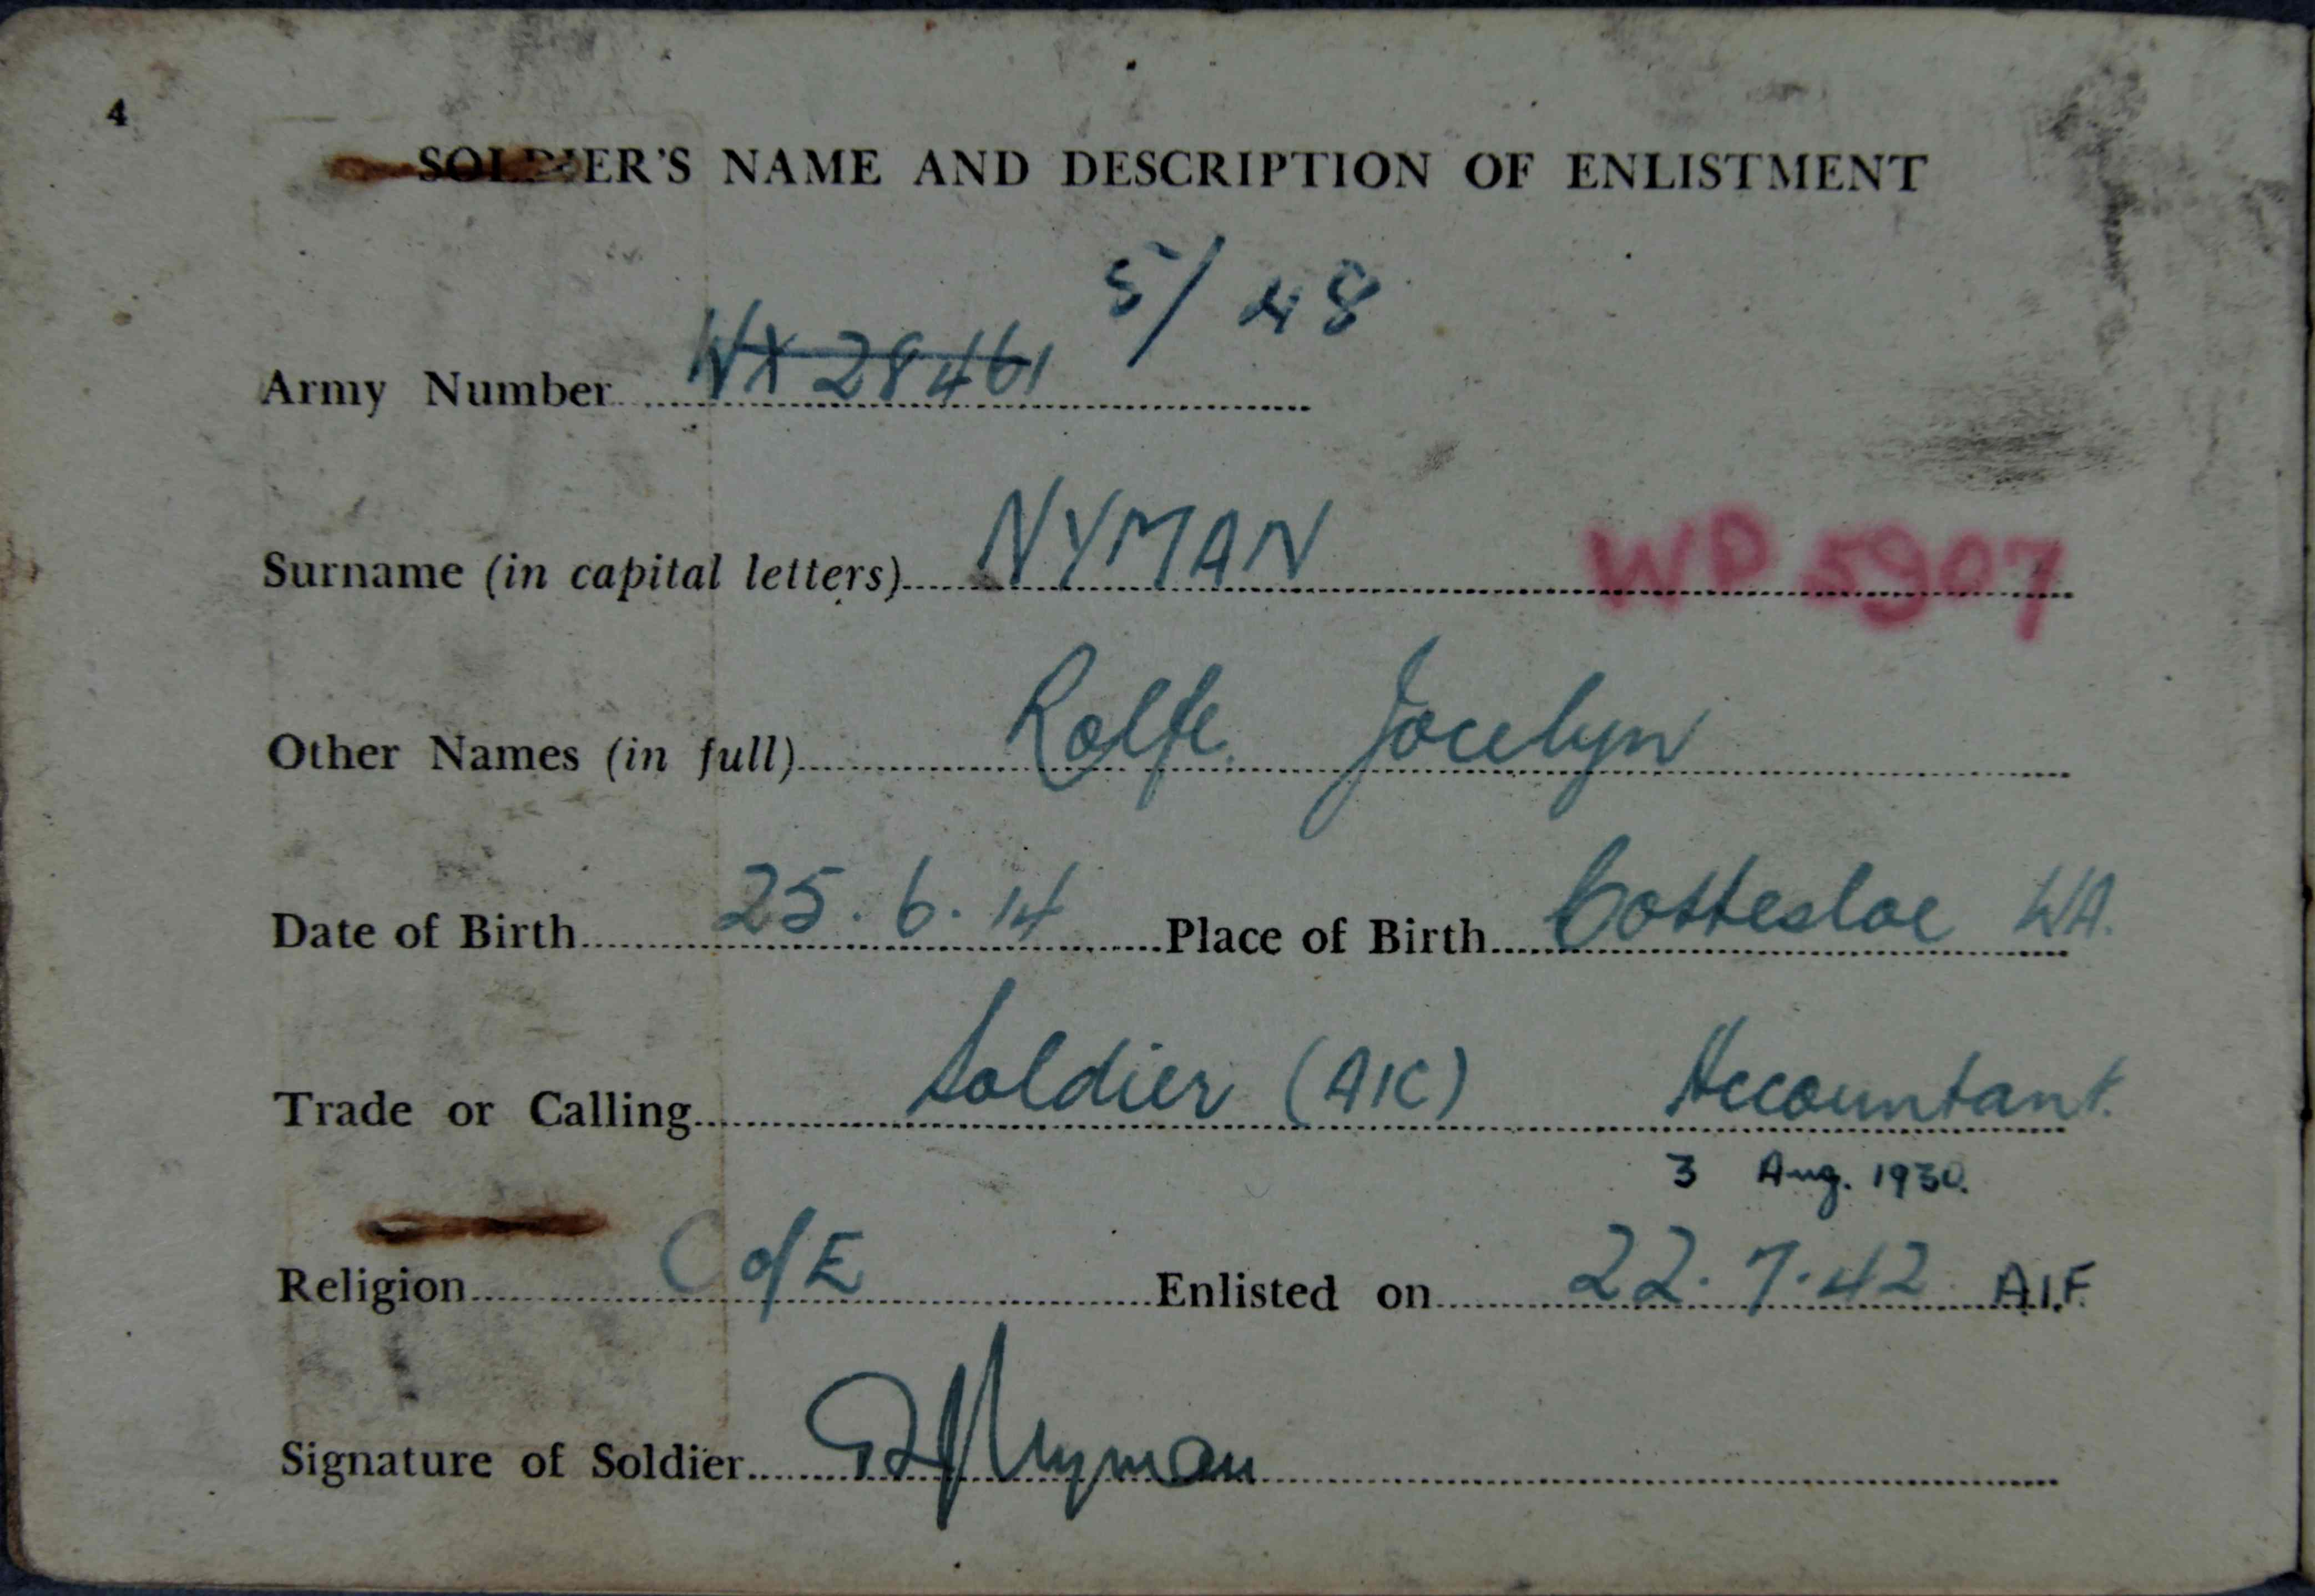 4
SOLDIER'S NAME AND DESCRIPTION OF ENLISTMENT
5/48
Army Number WX 28461
Surname (in capital letters) NYMAN WP 5907
Other Names (in full) Rolfe Jocelyn
Date of Birth 25.6.14 Place of Birth Cottesloe WA.
Trade or Calling Soldier (AIC) Accountant.
3 Aug. 1930.
Religion C of E Enlisted on 22.7.42 A.I.F.
Signature of Soldier RJNyman